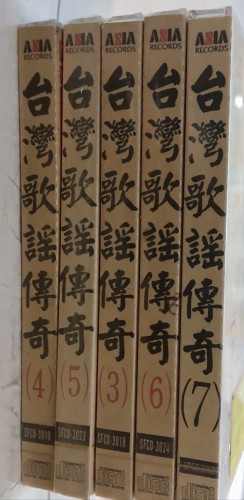 ASIA
RECORDS
台灣歌謠傳奇
(4)
SFCD-3019
ASIA
RECORDS
台灣歌謠傳奇
(5)
SFCD-3023
ASIA
RECORDS
台灣歌謠傳奇
(3)
SFCD-3018
ASIA
RECORDS
台灣歌謠傳奇
(6)
SFCD-3024
ASIA
RECORDS
台灣歌謠傳奇
(7)